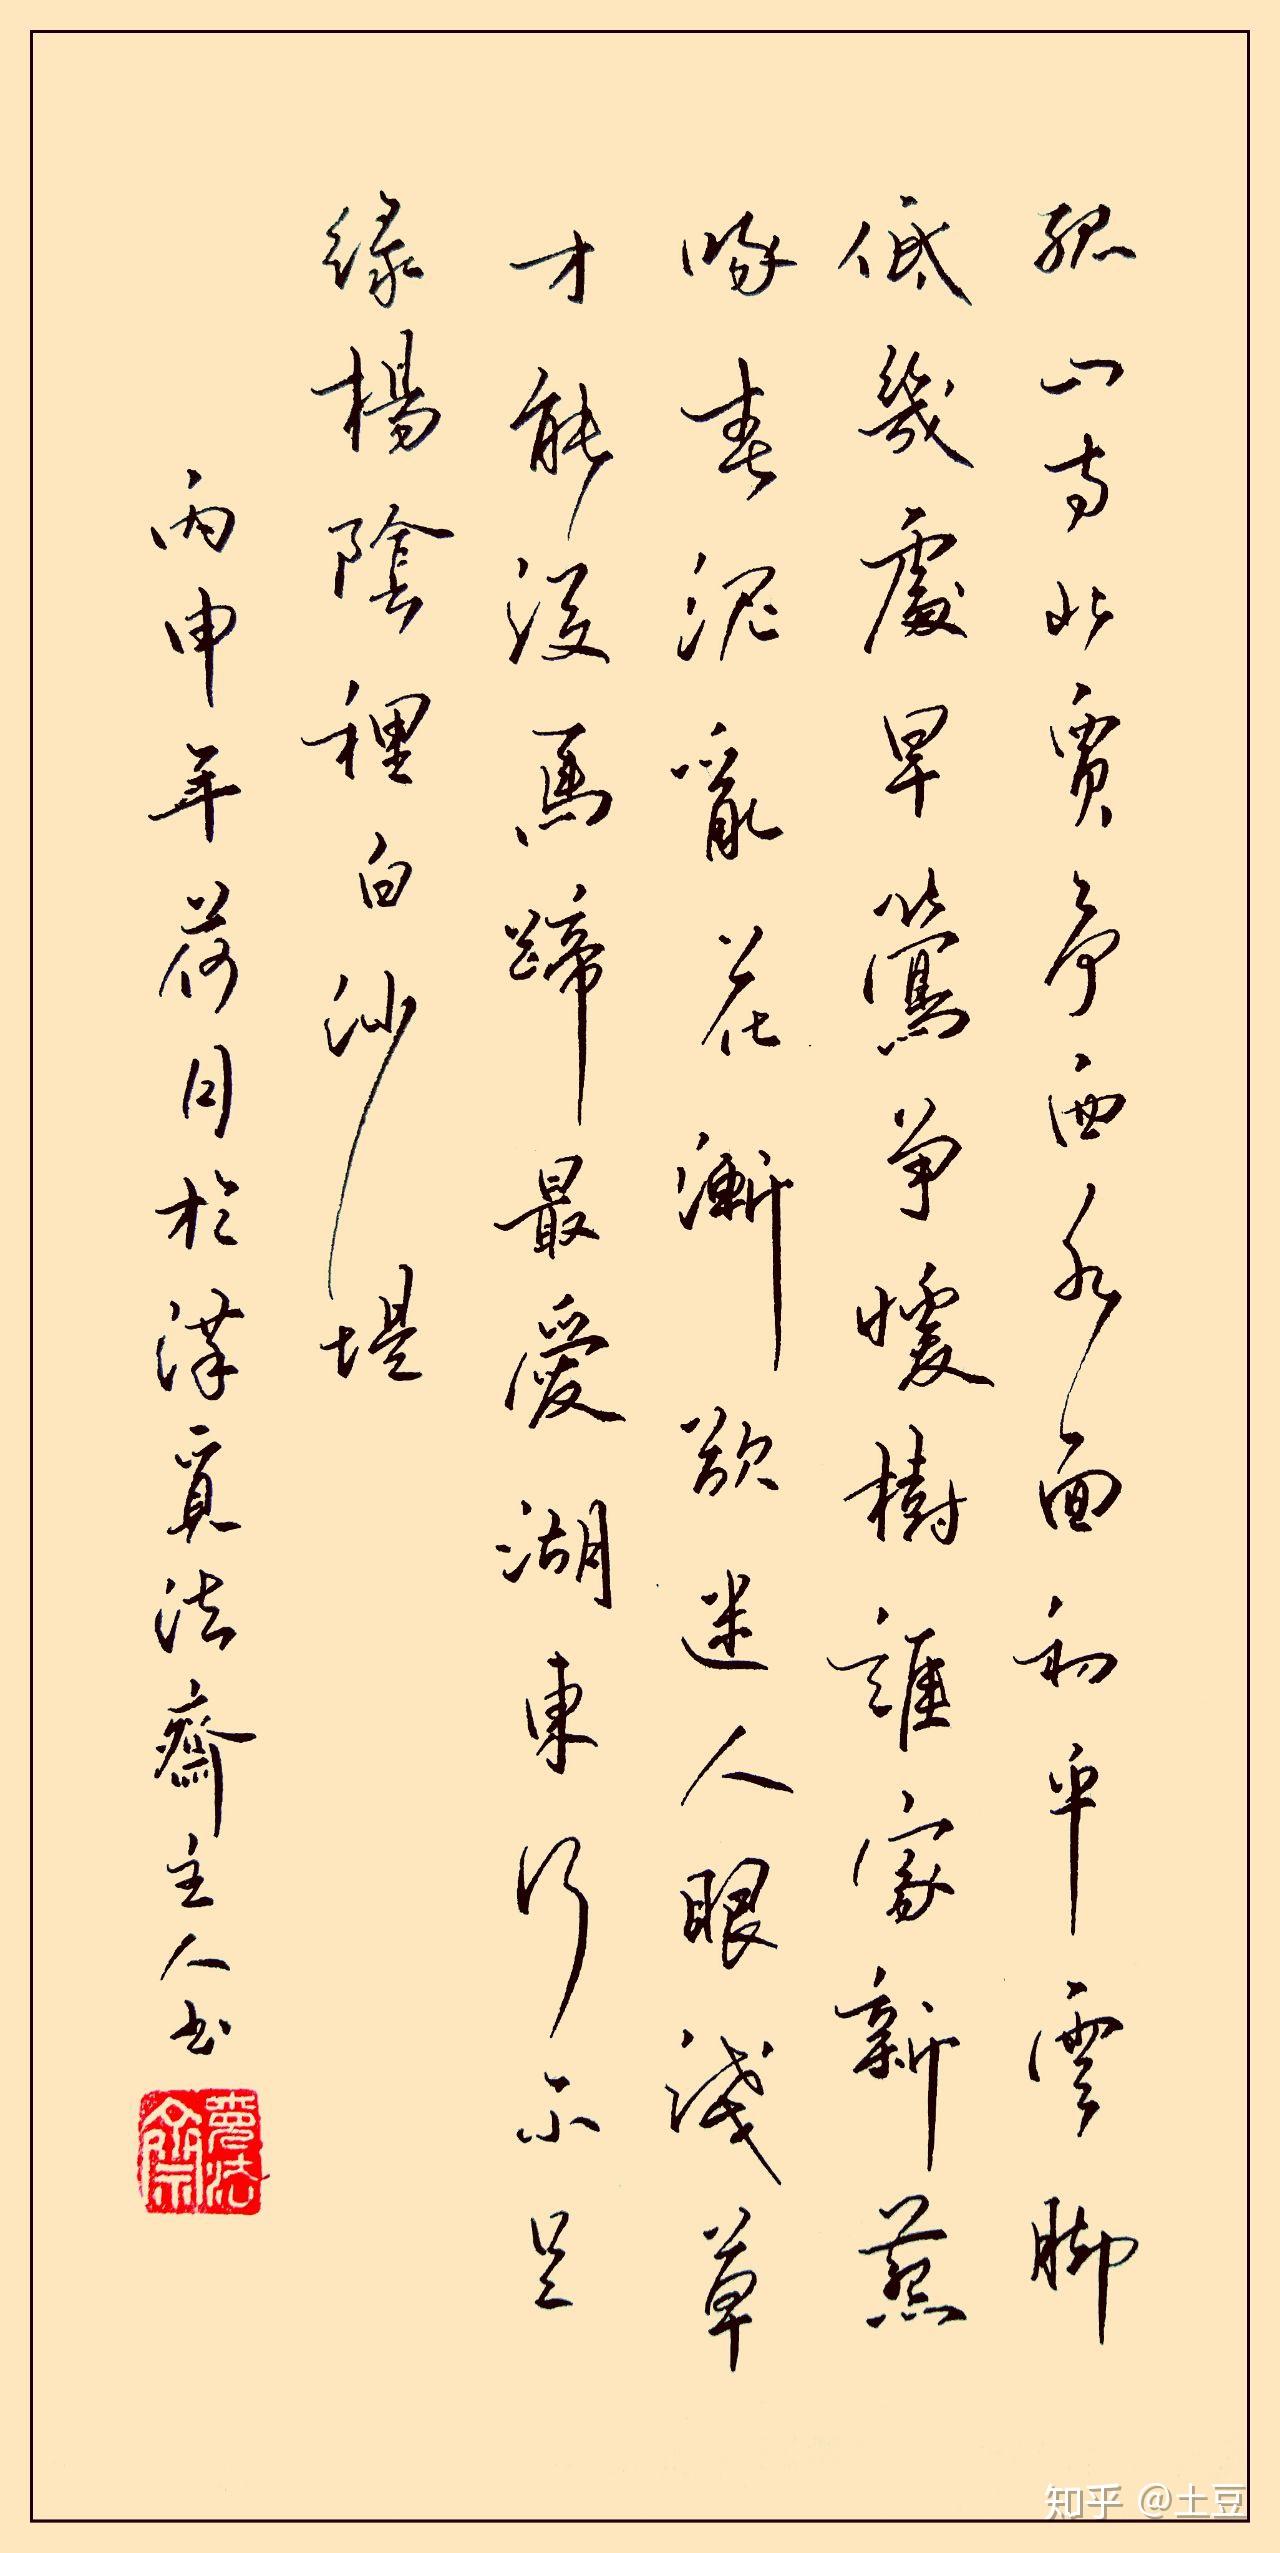 孤山寺北賈亭西水面初平雲脚
低幾處早鶯爭暖樹誰家新燕
啄春泥亂花漸欲迷人眼淺草
才能沒馬蹄最愛湖東行不足
綠楊陰裡白沙堤
丙申年荷月於漢覓法齋主人书
覓法齋
知乎 @土豆